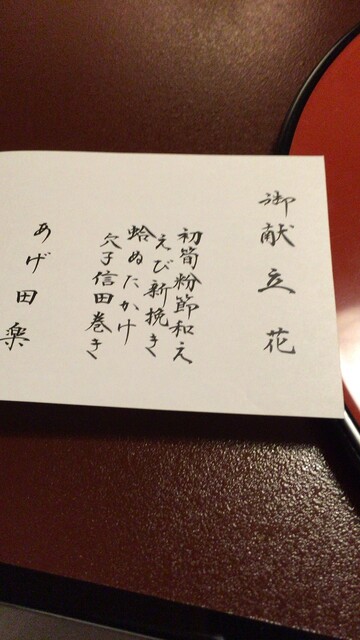 御献立 花
初筍粉節和え
えび新挽き
蛤ぬたかけ
穴子信田巻き
あげ田楽